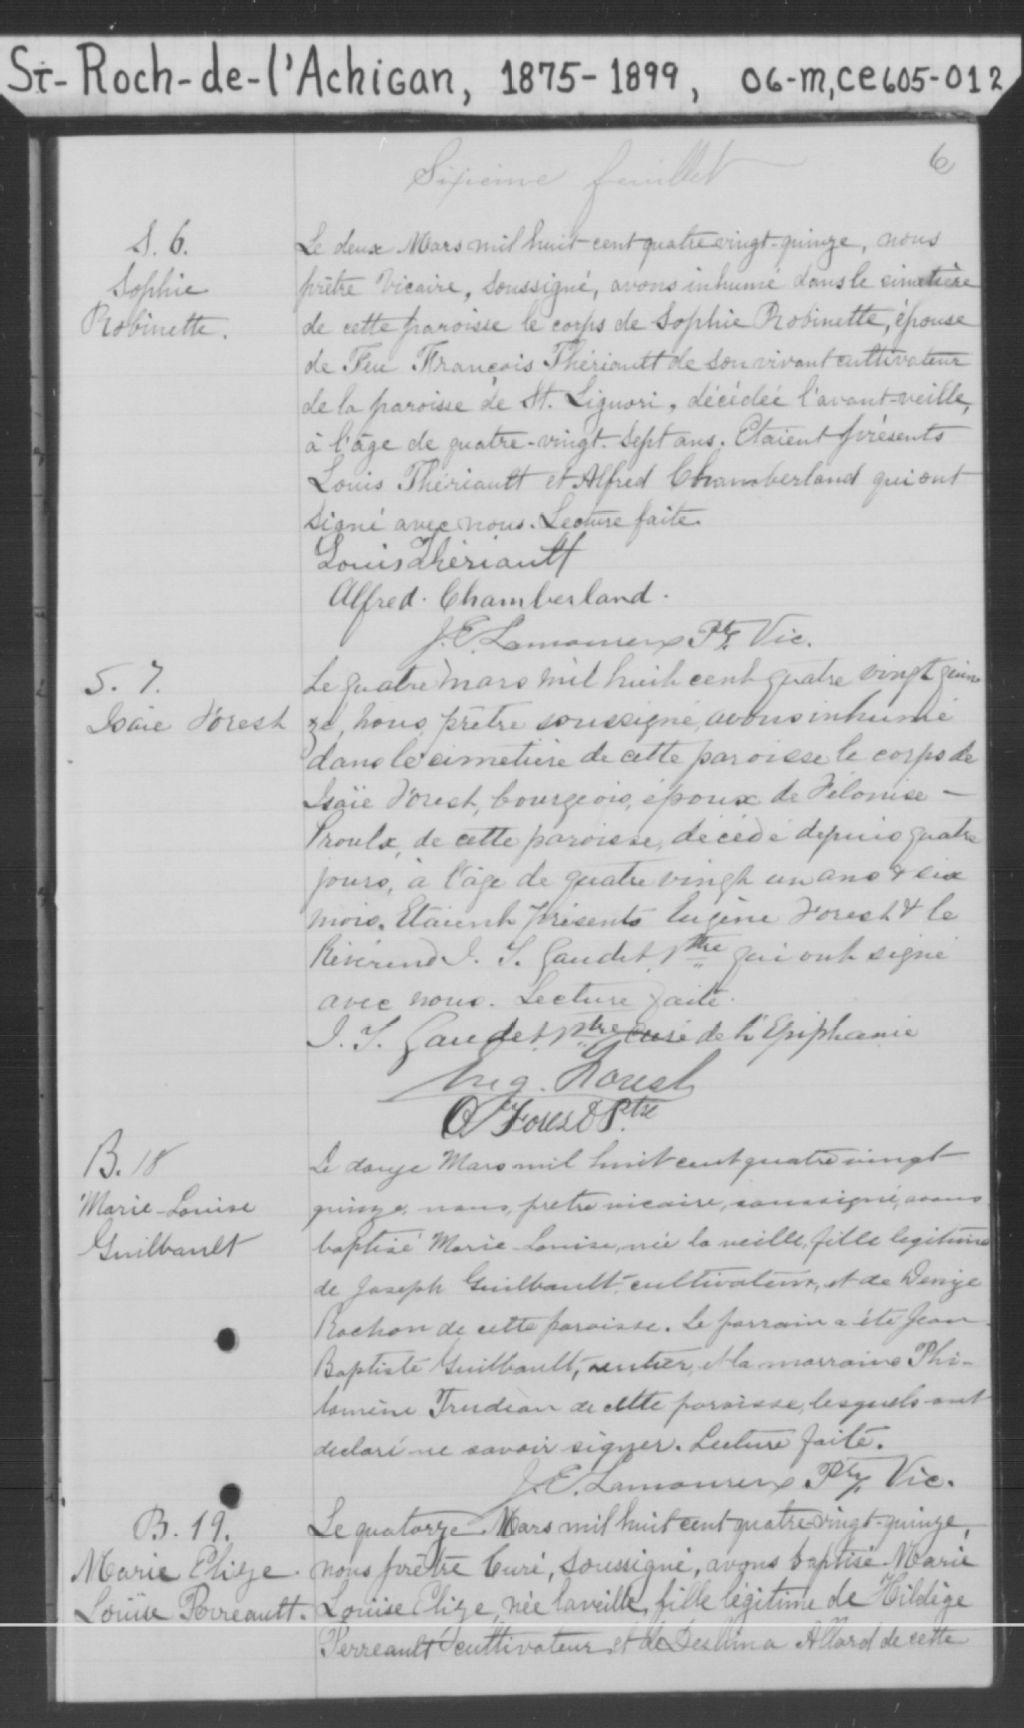 St-Roch-de-l'Achigan, 1875-1899, 06-M,CE605-012
Sixieme feuillet
6
S. 6.
Sophie
Robinette.
Le deux Mars mil huit-cent quatre vingt-quinze, nous
prêtre Vicaire, soussigné, avons inhumé dans le cimetière
de cette paroisse le corps de Sophie Robinette, épouse
de Feu François Thériault de son vivant cultivateur
de la paroisse de St. Liguori, décédée l'avant-veille,
à l'âge de quatre-vingt-sept ans. Etaient présents
Louis Thériault et Alfred Chamberland qui ont
signé avec nous. Lecture faite.
Louis Thériault
Alfred. Chamberland.
J. E. Lamoureux Ptr. Vic.
S. 7.
Isaïe Forest
Le quatre mars mil huit cent quatre vingt quin
ze, nous, prêtre soussigné, avons inhumé
dans le cimetière de cette paroisse le corps de
Isaïe Forest, bourgeois, époux de Félonise -
Proulx, de cette paroisse, décédé depuis quatre
jours, à l'âge de quatre vingt un ans & six
mois. Etaient présents Eugène Forest & le
Révérend J. T. Gaudet Ptre qui ont signé
avec nous. Lecture faite.
J. T. Gaudet Ptre curé de l'Epiphanie
Eug. Forest
O Forest Ptre
B. 18
Marie-Louise
Guilbault
Le douze Mars mil huit cent quatre vingt
quinze, nous, prêtre vicaire, soussigné, avons
baptisé Marie-Louise, née la veille, fille legitime
de Joseph Guilbault, cultivateur, et de Denize
Rochon de cette paroisse. Le parrain a été Jean
Baptiste Guilbault, rentier, et la marraine Phi-
lomène Trudeau de cette paroisse, lesquels ont
declaré ne savoir signer. Lecture faite.
J. E. Lamoureux Ptr. Vic.
B. 19.
Marie Elize
Louise Perreault.
Le quatorze Mars mil huit cent quatre-vingt-quinze,
nous prêtre Curé, soussigné, avons baptisé Marie
Louise Elize, née la veille, fille légitime de Hildège
Perreault cultivateur et de Deslima Allard de cette